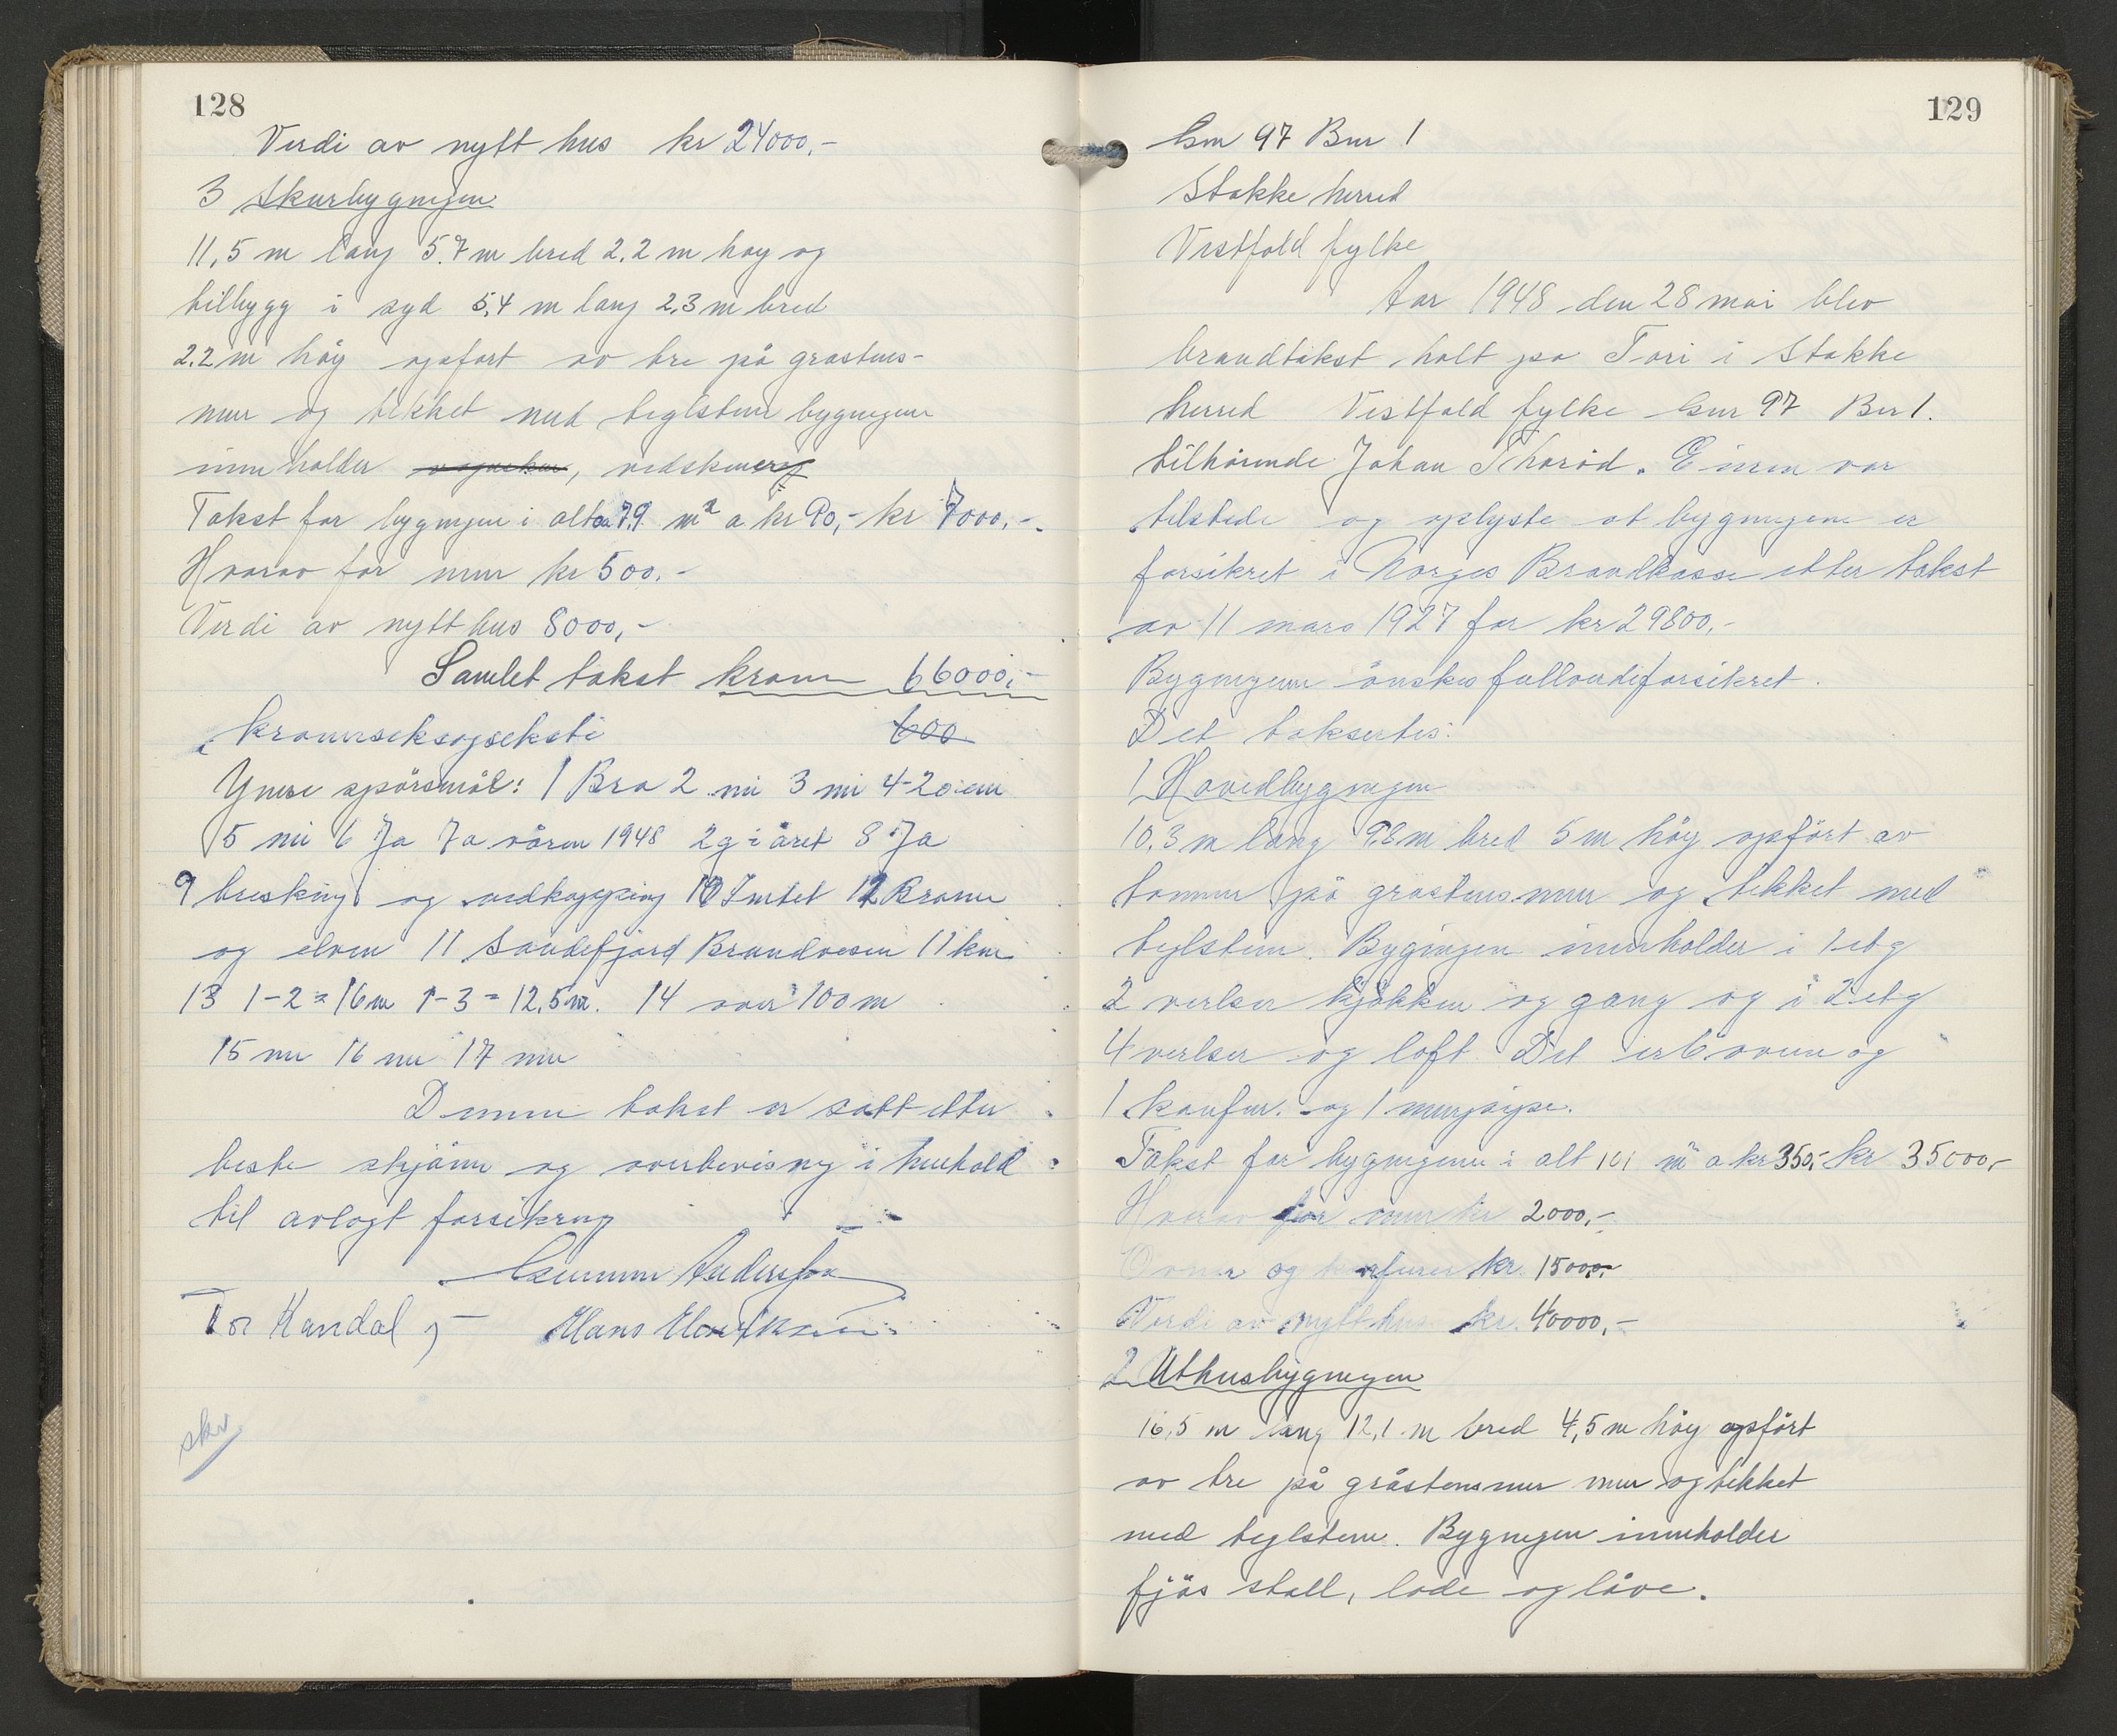 128
Verdi av nytt hus kr 24000,-
3 Skurbygningen
11,5 m lang 5.7 m bred 2.2 m høy og
tilbygg i syd 5,4 m lang 2,3 m bred
2.2 m høy opsført av tre på gråstens-
mur og tekket med teglstene bygningen
inneholder vognskur, vedskur
Takst for bygningen i alt 79 m² a kr 90,- kr 7000,-
Hvorav for mur kr 500.-
Verdi av nytt hus 8000,-
Samlet takst kroner 66000,-
kronerseksogseksti 600
Ymse spörsmål: 1 Bra 2 nei 3 nei 4-20 cm
5 nei 6 Ja 7a våren 1948 2 g i året 8 Ja
9 tresking og vedkapping 10 Intet 12 Brønn
og elven 11 Sandefjord Brandvesen 11 km
13 1-2 = 16 m 1-3 = 12,5 m. 14 over 100 m
15 nei 16 nei 17 nei
Denne takst er satt etter
beste skjønn og overbevisning i henhold
til avlagt forsikring
Gunnar Andersson
Tor Kandal Hans Henriksen
skr
129
Gnr 97 Bnr 1
Stokke herred
Vestfold fylke
Aar 1948 den 28 mai blev
brandtakst holt på Fari i Stokke
herred Vestfold fylke Gnr 97 Bnr 1.
tilhörende Johan Thoröd. Eieren var
tilstede og oplyste at bygningene er
forsikret i Norges Brandkasse etter takst
av 11 mars 1927 for kr 29800,-
Bygningene önskes fullverdiforsikret.
Det taksertes:
1 Hovedbygningen
10,3 m lang 9.8 m bred 5 m høy opsfört av
tømmer på gråstensmur og tekket med
teglstene. Bygningen inneholder i 1 etg
2 verelser kjökken og gang og i 2 etg
4 verelser og loft Det er 6 ovne og
1 komfur. og 1 murpipe.
Takst for bygningene i alt 101 m² a kr 350,- kr 35000,-
Hvorav for mur kr 2000,-
Ovner og komfurer kr. 1500,-
Verdi av nytt hus kr. 40000,-
2 Uthusbygningen
16,5 m lang 12,1 m bred 4,5 m høy opsfört
av tre på gråstensmur mur og tekket
med teglstene. Bygningen inneholder
fjös stall, lade og låve.